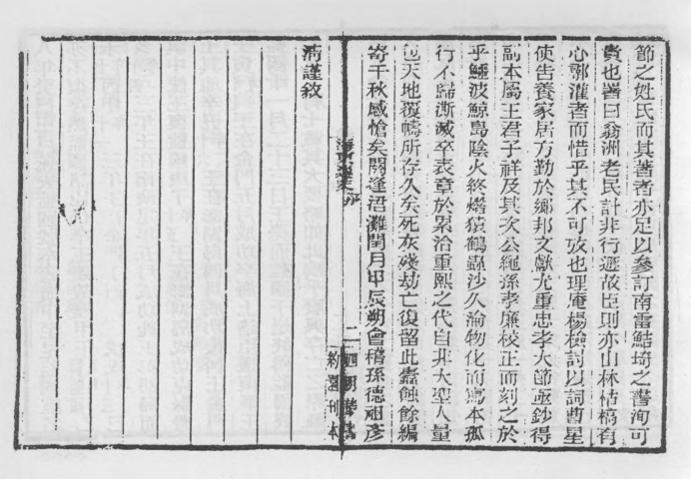 節之姓氏而其著者亦足以參訂南雷鮚埼之書洵可
貴也署曰翁洲老民計非行遯故臣則亦山林枯槁有
心鄠灌者而惜乎其不可攷也理庵楊檢討以詞曹星
使告養家居方勤於鄉邦文獻尤重忠孝大節亟鈔得
副本屬王君子祥及其次公繩孫孝廉校正而刻之於
乎鱷波鯨島陰火終熸猿鶴蟲沙久淪物化而寫本孤
行不歸澌滅卒表章於累洽重熙之代自非大聖人量
包天地覆幬所存久矣死灰殘劫亡復留此蠹蝕餘編
寄千秋感愴矣閼逢涒灘閏月甲辰朔會稽孫德祖彥
清謹敘
海東逸史
二
四明叢書
約園刊本